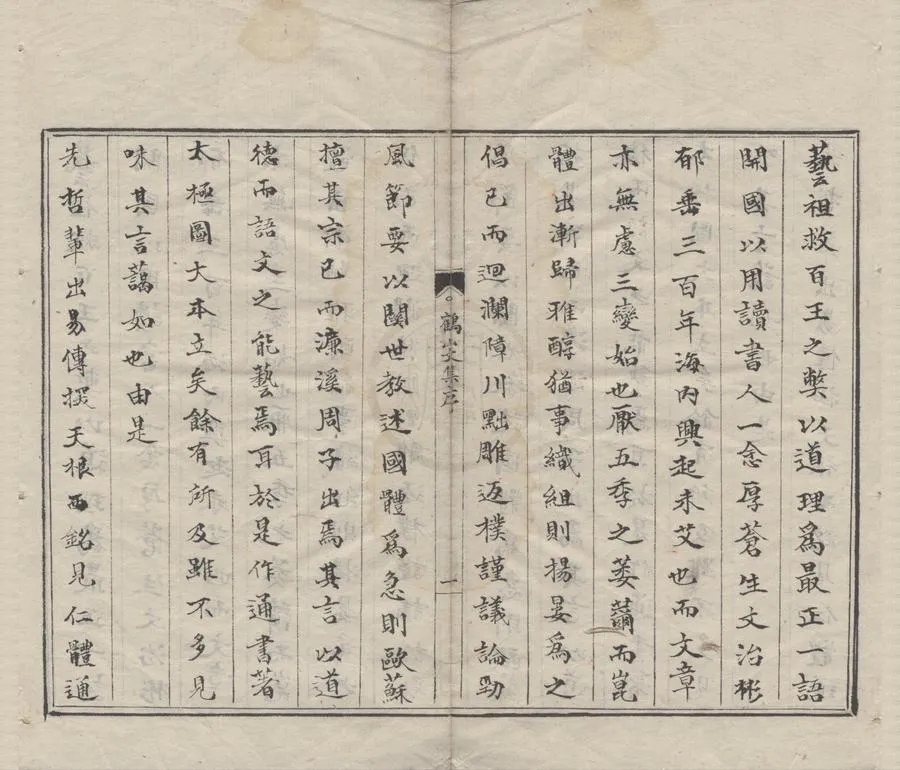 藝祖救百王之獘以道理爲最正一語
開國以用讀書人一念厚蒼生文治彬
郁垂三百年海内興起未艾也而文章
亦無慮三變始也厭五季之萎薾而崑
體出漸歸雅醇猶事織組則揚晏爲之
倡已而迴瀾障川黜雕返樸謹議論勁
鶴山文集序
一
風節要以關世教述國體爲急則歐蘇
擅其宗已而濂溪周子出焉其言以道
德而語文之能藝焉耳於是作通書著
太極圖大本立矣餘有所及雖不多見
味其言藹如也由是
先哲輩出易傳探天根西銘見仁體通